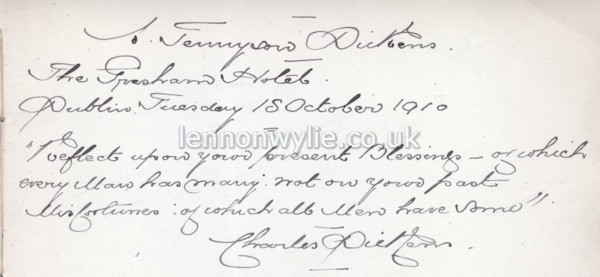 A. Tennyson Dickens.
The Gresham Hotel.
Dublin. Tuesday 18 October 1910
lennonwylie.co.uk
"Reflect upon your present Blessings – of which
every Man has many: not on your past
Misfortunes: of which all Men have some".
Charles Dickens.